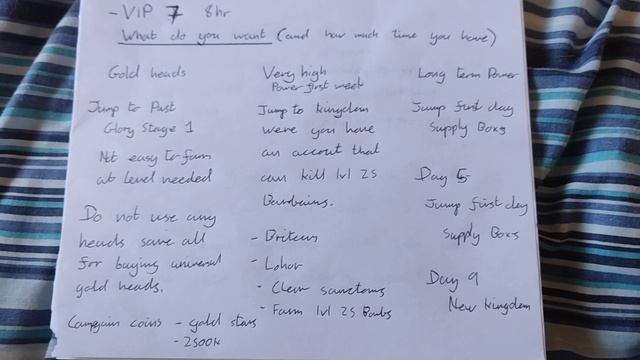 - VIP 7 8hr
What do you want (and how much time you have)
Gold heads
Jump to Past
Glory Stage 1
Not easy to farm
at level needed
Do not use any
heads save all
for buying universal
gold heads.
Campain coins - gold stars
- 2500k
Very high
Power first week
Jump to kingdom
were you have
an accout that
can kill lvl 25
Barbains.
- Britain
- Lohar
- Clear sanctoms
- Farm lvl 25 Barbs
Long term Power
Jump first day
Supply Boxs
Day 5
Jump first day
Supply Boxs
Day 9
New kingdom